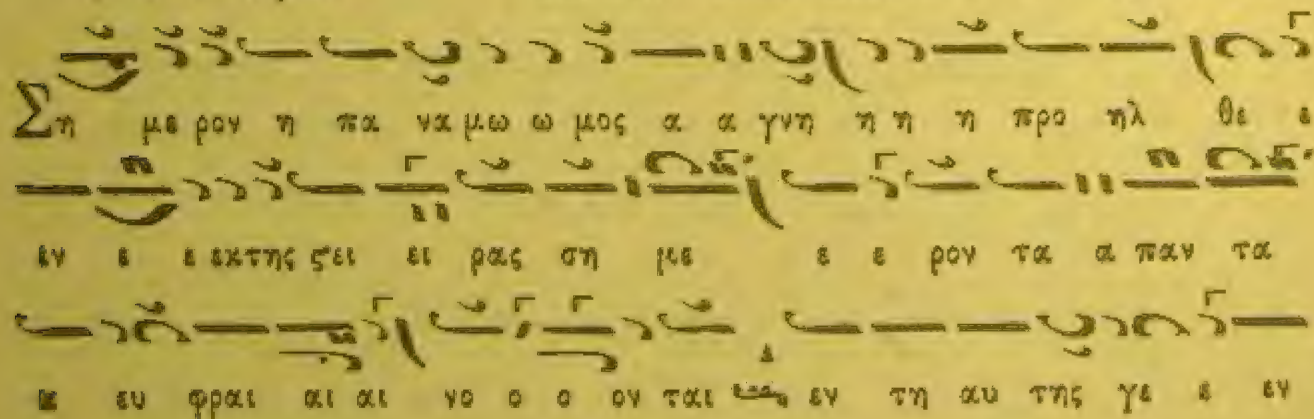 Ση με ρον η πα να μω ω μος α α γνη η η η προ ηλ θε ε
εν ε ε εκ της ϛει ει ρας ση με ε ε ρον τα α παν τα
ευ φραι αι αι νο ο ο ον ται εν τη αυ της γε ε εν